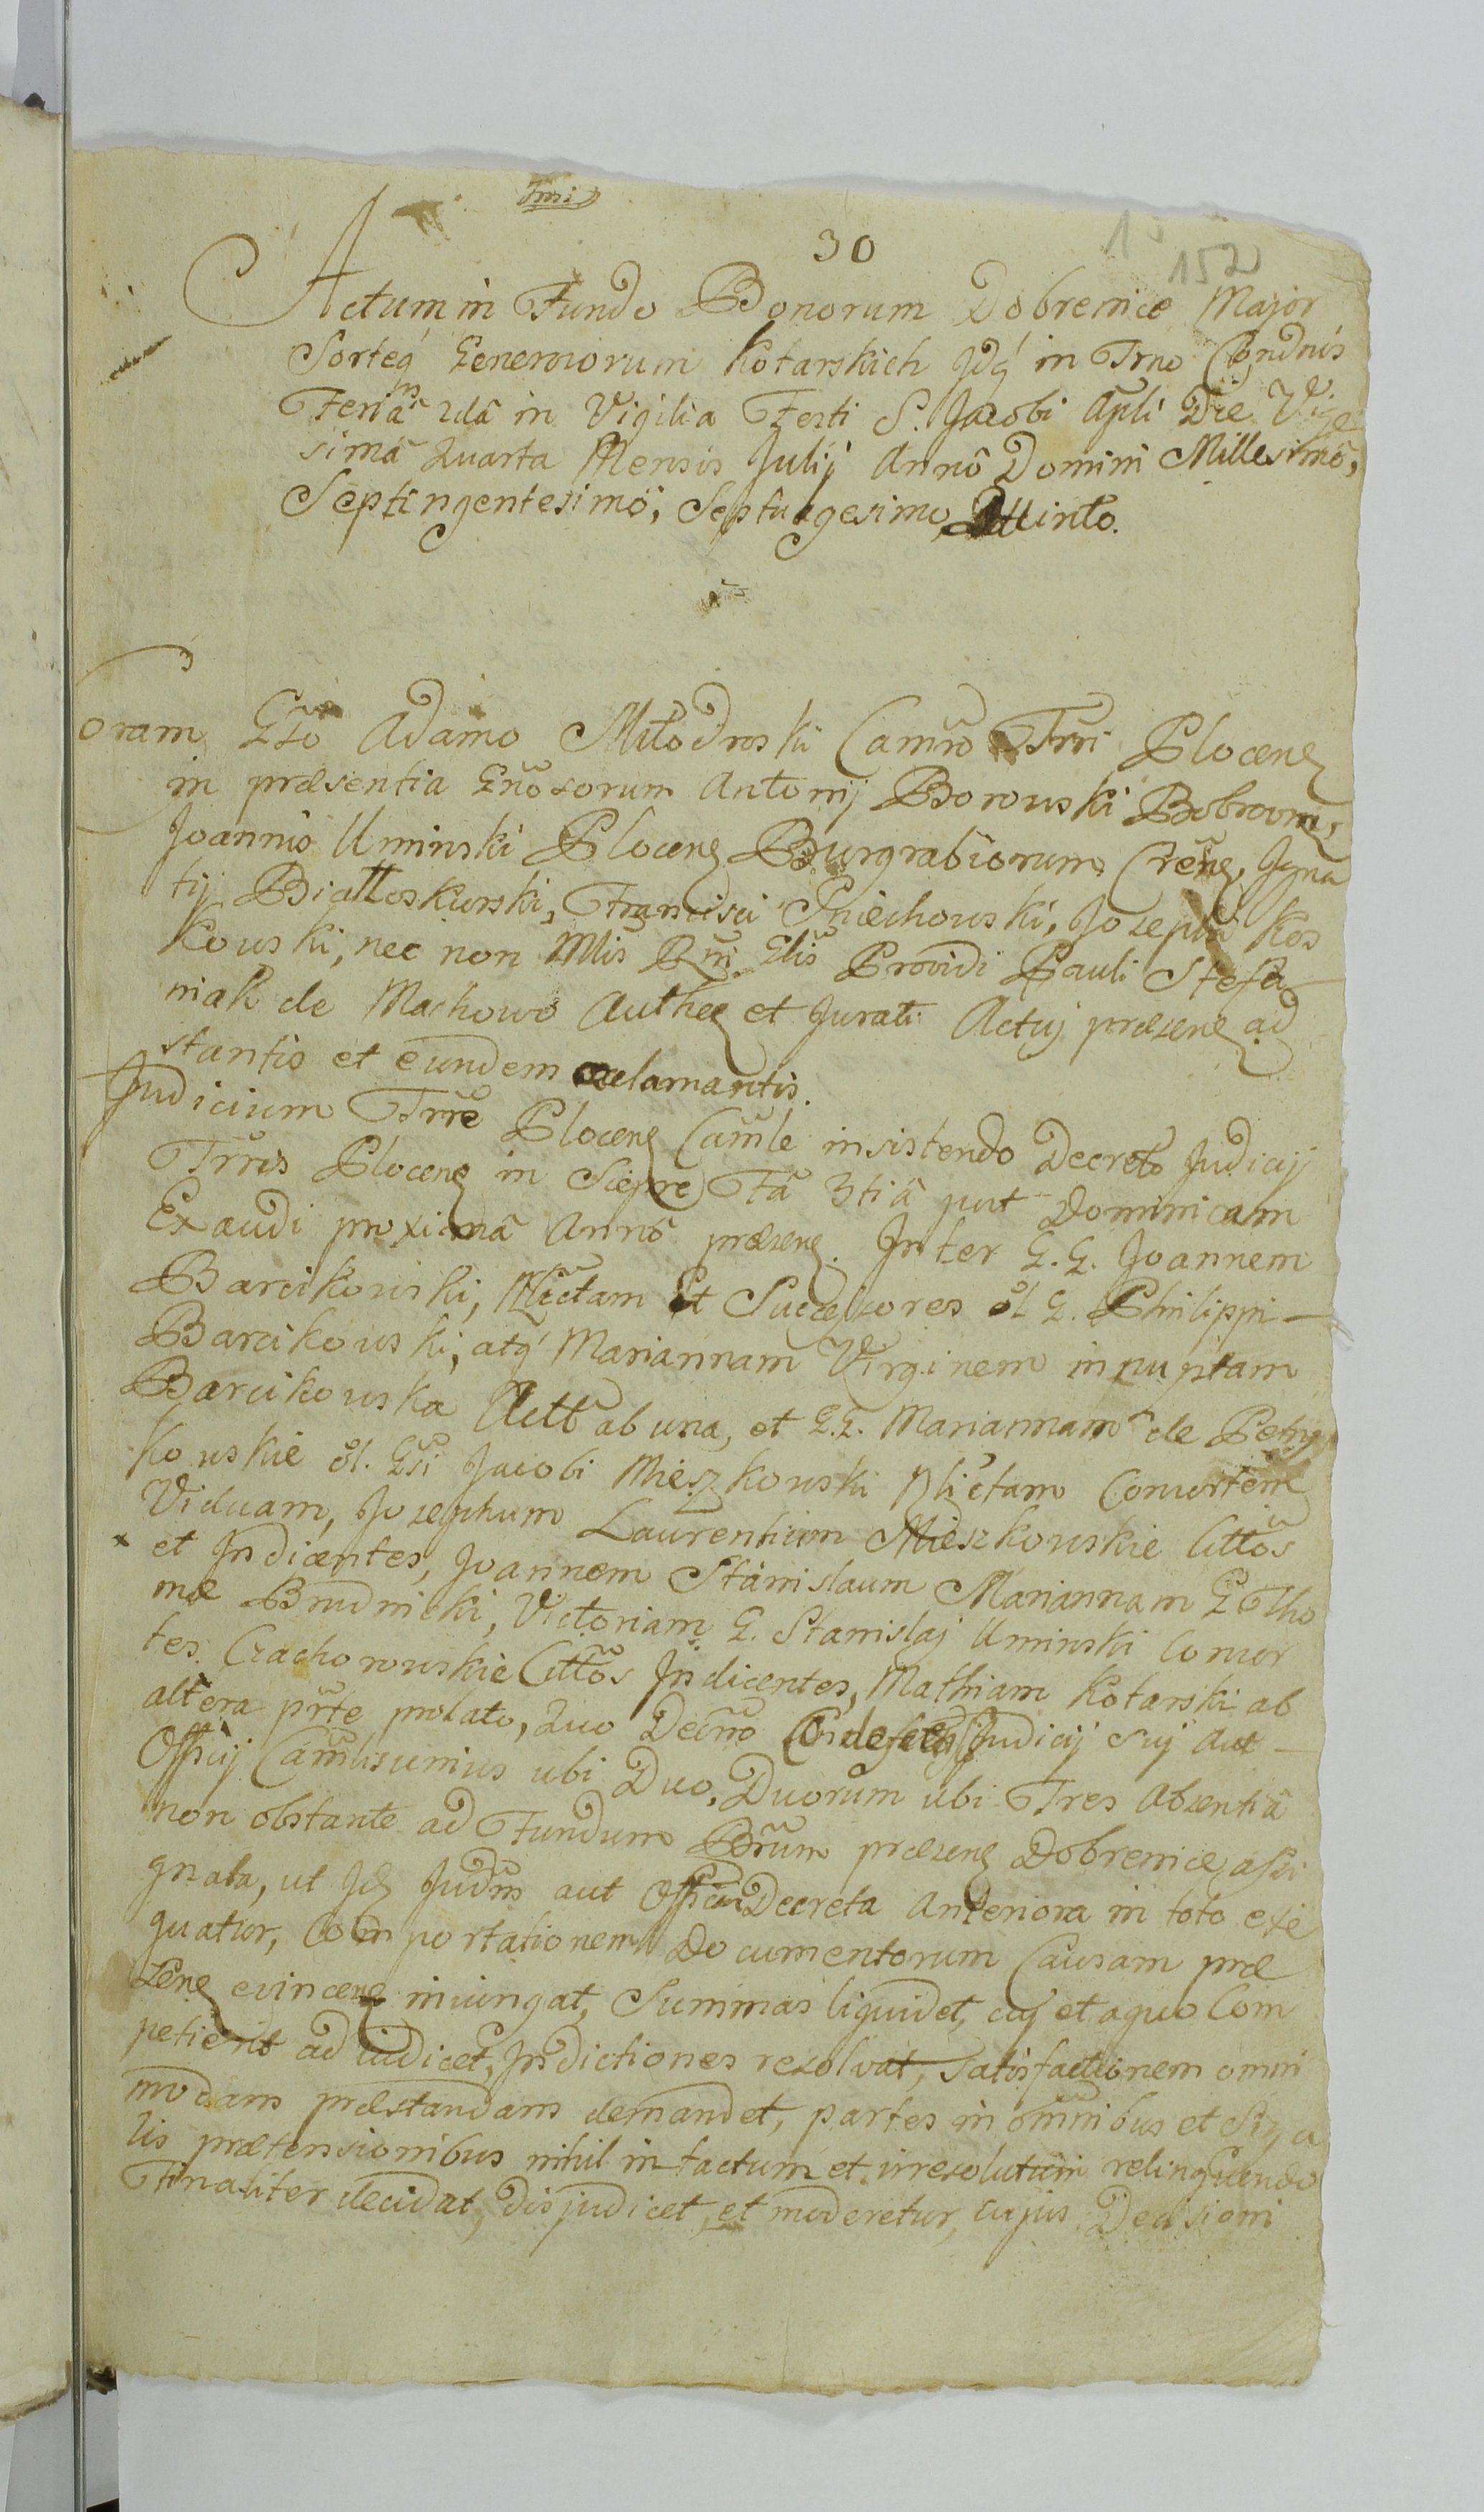 30
152
Actum in Fundo Bonorum Dobrenice Major
Sorteq́ Generosorum Kotarskich Jdq́ in Trno Condnis
Feria 2dâ in Vigilia Festi S. Jacobi Apli Die Vige
simâ Quarta Mensis Julij Annô Domini Millesimô,
Septingentesimô, Septuagesimo Quinto.
Coram Gso Adamo Młodroski Camrô Trri Plocens
in præsentia Gnosorum Antonij Borowski Bobrovni,
Joannis Uminski Plocens Burgrabiorum Crens, Igna
tij Białłoskurski, Francisci Sniechowski, Josephi Kos
kowski, nec non Mlis Rni Glis Providi Pauli Stefa
niak de Machowo Authes et Jurati Actuj præsens ad
stantis et eundem aclamantis.
Judicium Trre Plocens Camle insistendo Decreto Judicij
Trris Plocens in Sieprc Fâ 3tiâ put Dominicam
Exaudi proximâ Annô præsens. Inter G. G. Joannem
Barcikowski, Rlictam Et Successores ol G. Philippi
Barcikowski, atq́ Mariannam Virginem inpuptam
Barcikowska Actt ab una, et G.G. Mariannam de Petry
kowskie ol. Gsi Jacobi Mieszkowski Rlictam Consortem
Viduam, Josephum Laurentium Mieszkowskie Cittos
et Indicentes, Joannem Stanislaum Mariannam G Tho
mæ Brudnicki, Victoriam G. Stanislaj Uminski Consor
tes Czachorowskie Cittos Indicentes, Mathiam Kotarski ab
altera prte prolato, quo Decrto Judicij suj aut
Officij Camlis unius ubi Duo, Duorum ubi Tres absentiâ
non obstante ad Fundum Bnrum præsens Dobrenice assi
gnata, ut Jds Judm aut Officiu Decreta Anteriora in toto exe
quatur, Comportationem Documentorum Causam præ
sens evincens iniungat, Summas liquidet, cuj et a quo Com
petierit adiudicet, Indictiones resolvat, satisfactionem omni
modam præstandam demandet, partes in omnibus et Sigu
lis prætensionibus nihil intactum et irresolutum relinquendo
Finaliter decidat, disjudicet, et moderetur, cujus Decisioni